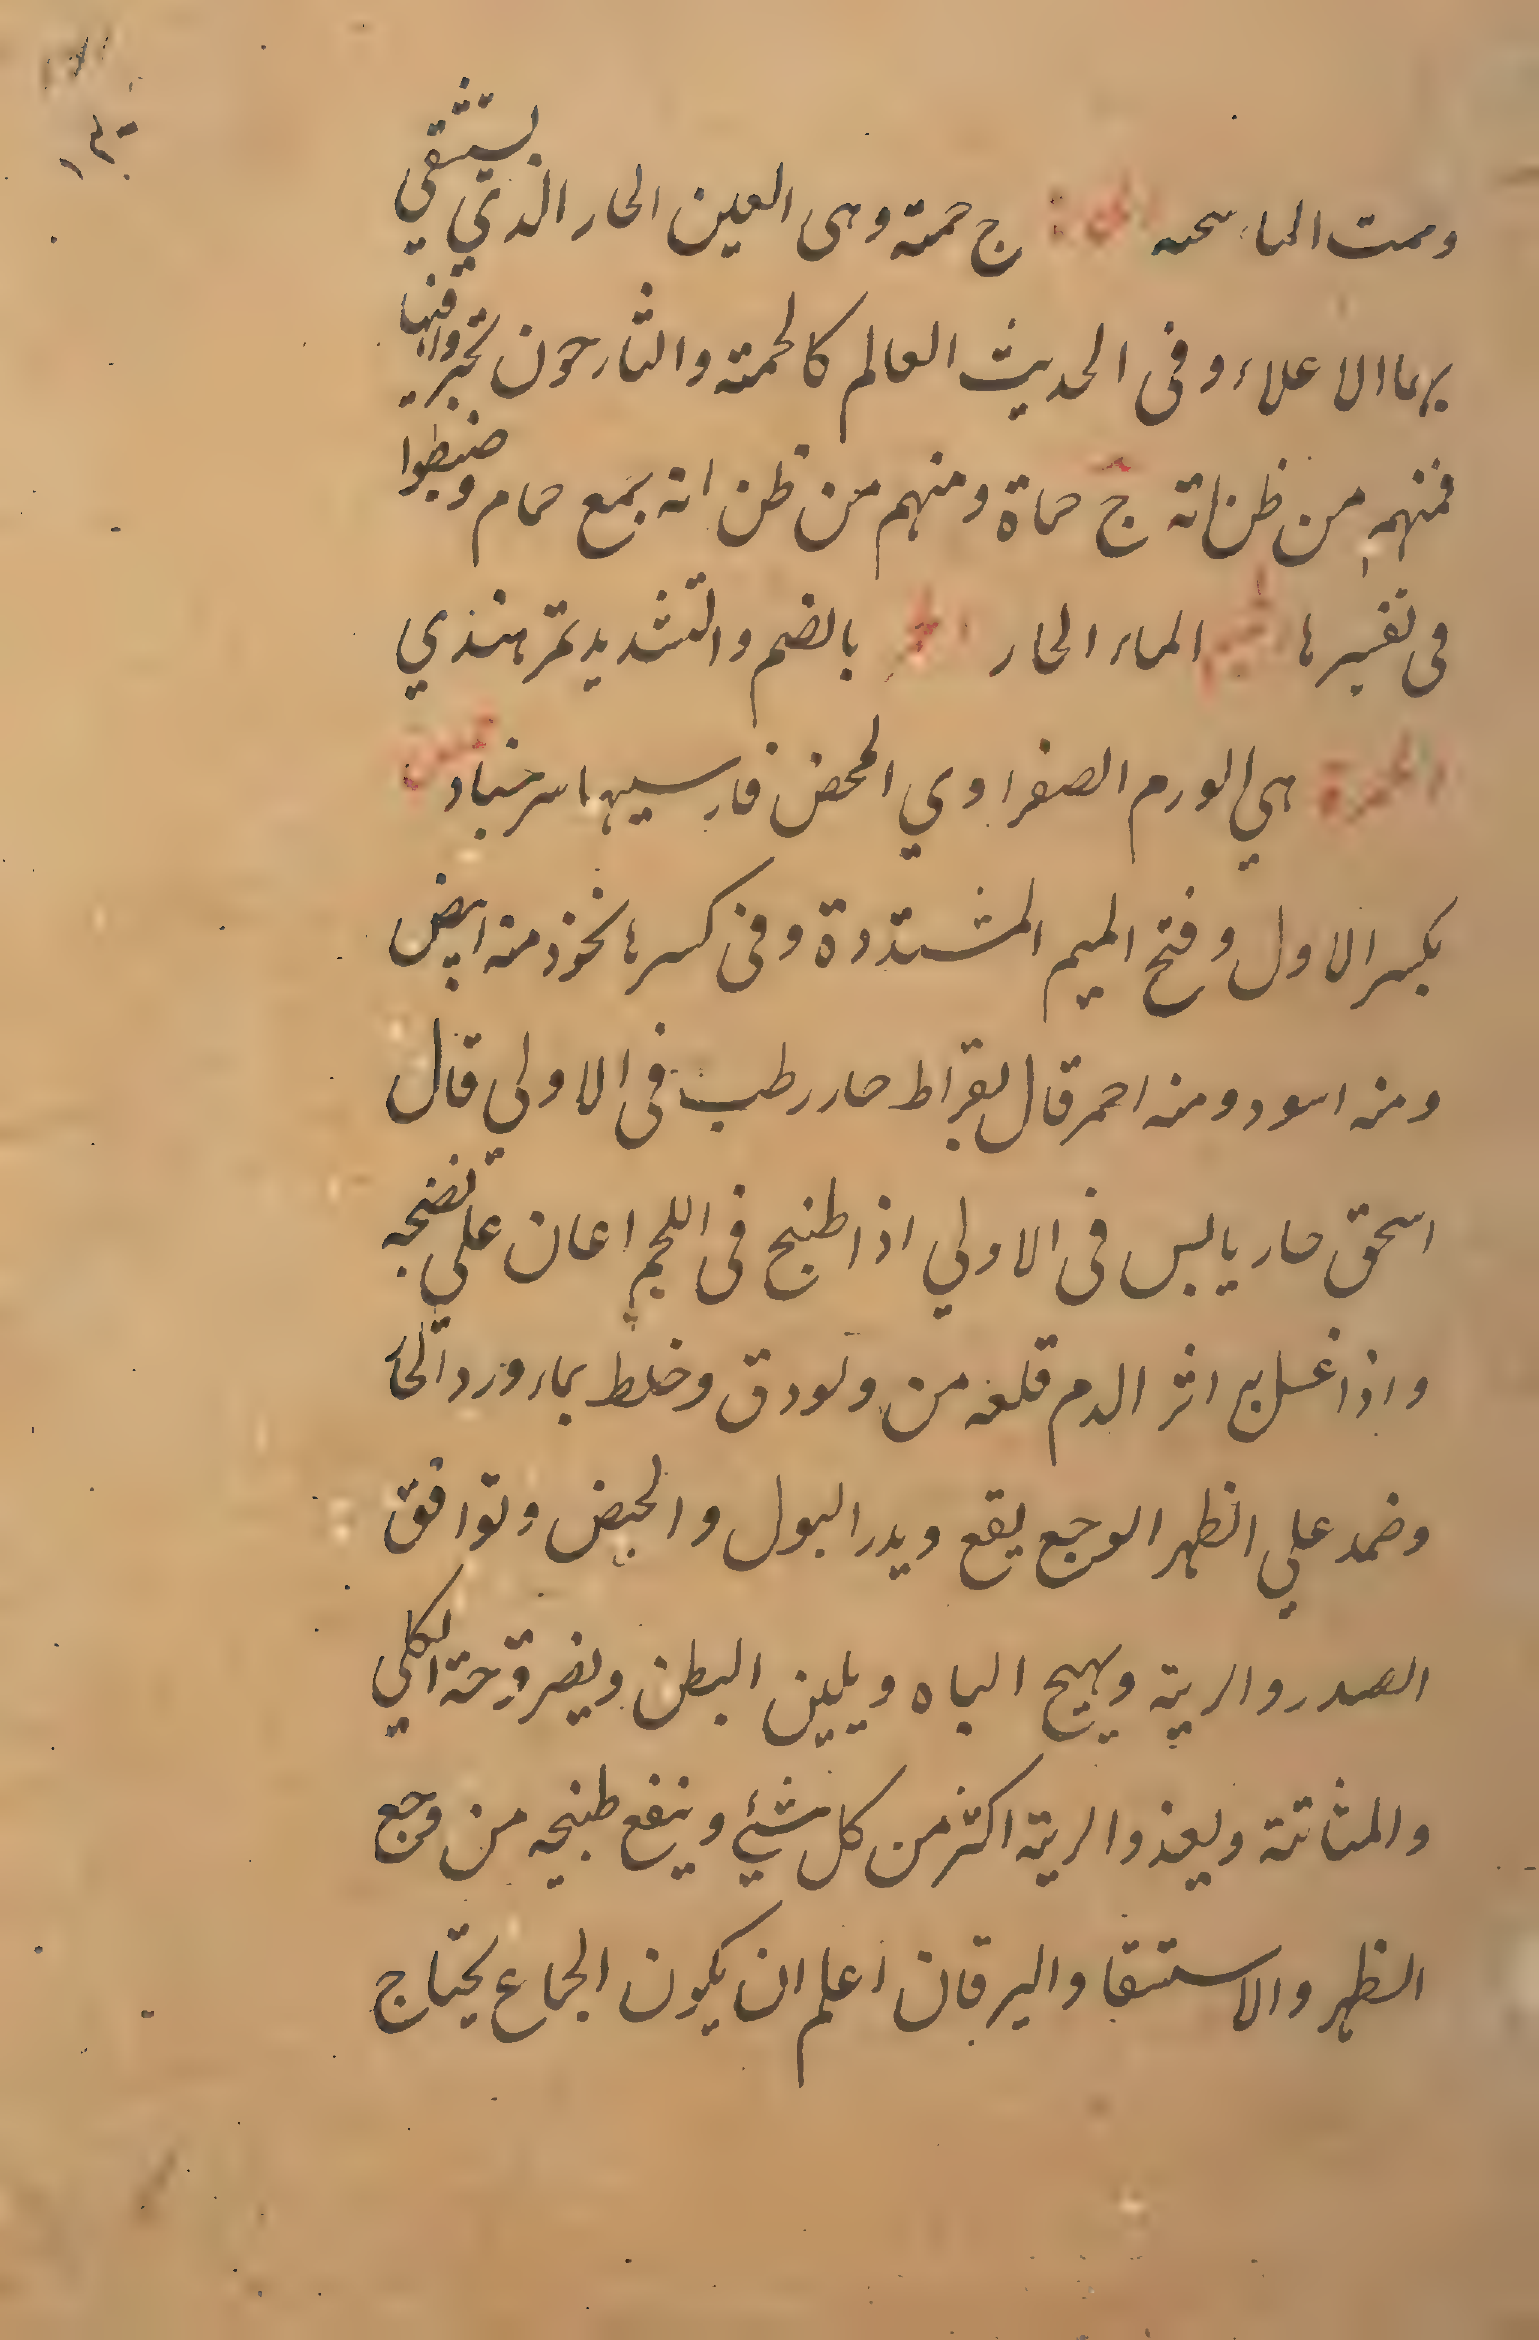 وحمت الماء سخنه الحمة: ج حمته وهى العين الحار الذي يستشقي
بهماالاعلاء وفى الحديث العالم كالحمته والشارحون تحيروافيها
فمنهم من ظن انه ج حماة ومنهم من ظن انه بجمع حمام وخبطوا
فى تفسيرها الحميم الماء الحار الحمر بالضم والتشديد تمر هندي
الحمرة هي الورم الصفراوي المحض فارسيهاسرخباد حمص
بكسر الاول وفتح الميم المشددة وفى كسرها نحوذ منه ابيض
ومنه اسود ومنه احمر قال بقراط حار رطب فى الاولي قال
اسحق حار يابس فى الاولي اذا طبخ فى اللحم اعان علي نضجه
واذا غسل به اثر الدم قلعه من ولودق وخلط بماء ورد الحار
وضمد علي الظهر الوجع يقع ويدر البول والحيض وتوافق
الصدر والرية ويهيج الباه ويلين البطن ويضر قرحة الكلي
والمثانة ويغذوالرية اكثر من كل شئي وينفع طبخيه من وجع
الظهر والاستسقا واليرقان اعلم ان يكون الجماع يحتاج